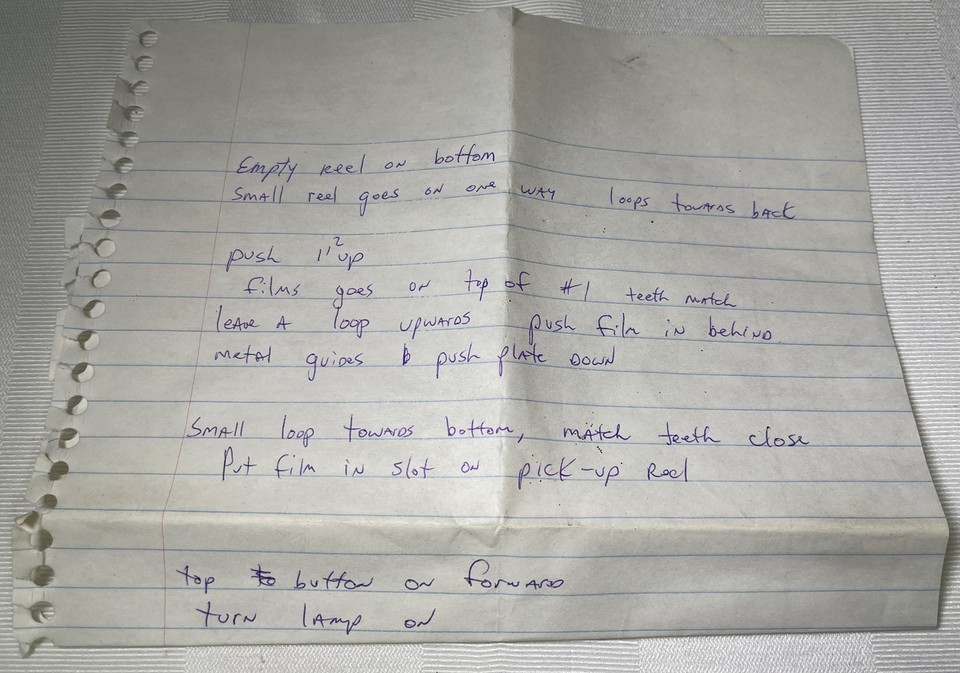 Empty reel on bottom
Small reel goes on one way loops towards back
push 1,2 up
films goes on top of #1 teeth match
leave A loop upwards push film in behind
metal guides & push plate down
Small loop towards bottom, match teeth close
Put film in slot on pick-up Reel
top button on forward
turn lamp on